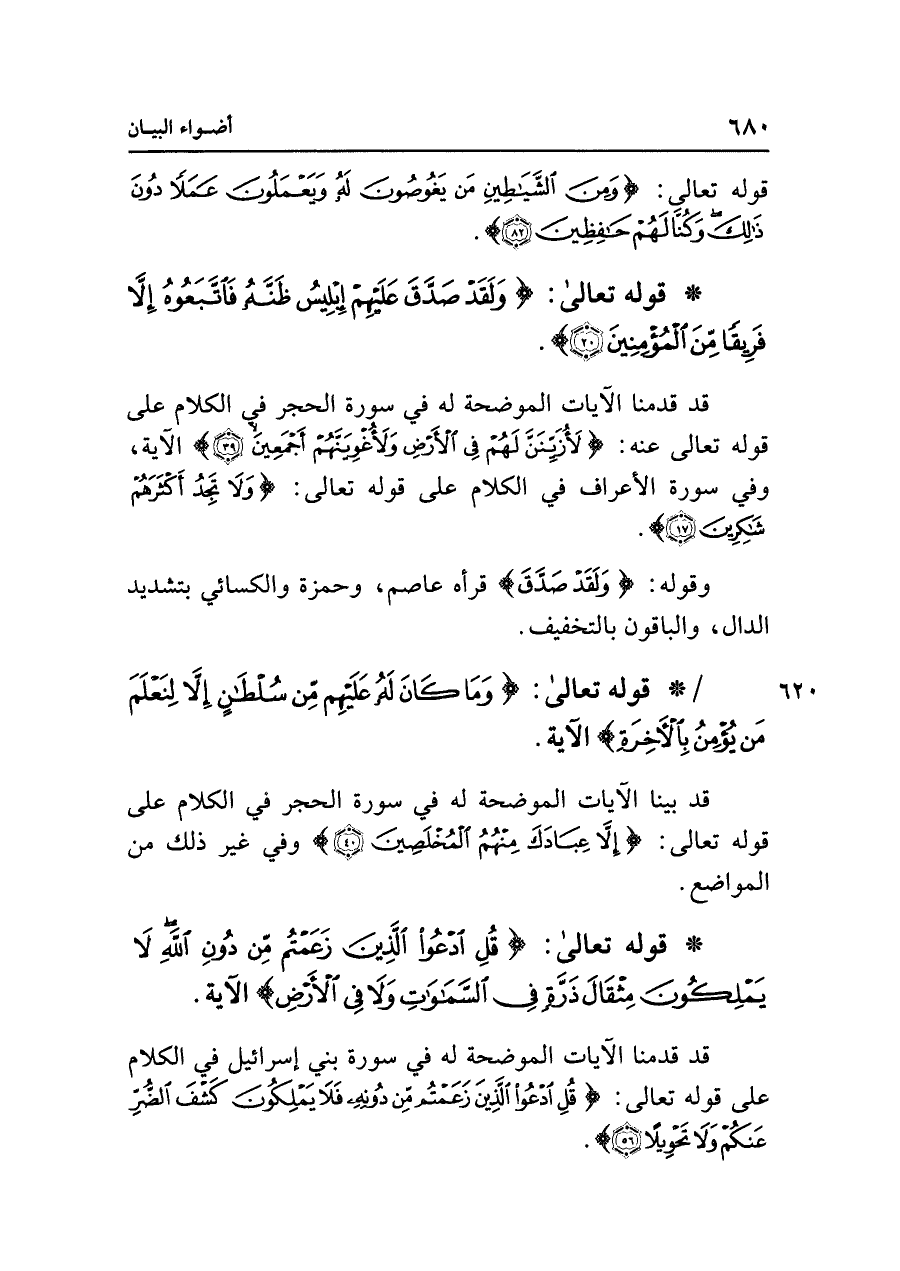 ٦٨٠ أضواء البيان
قوله تعالى: ﴿وَمِنَ ٱلشَّيَٰطِينِ مَن يَغُوصُونَ لَهُۥ وَيَعۡمَلُونَ عَمَلٗا دُونَ
ذَٰلِكَۖ وَكُنَّا لَهُمۡ حَٰفِظِينَ ٨٢﴾.
* قوله تعالىٰ: ﴿وَلَقَدۡ صَدَّقَ عَلَيۡهِمۡ إِبۡلِيسُ ظَنَّهُۥ فَٱتَّبَعُوهُ إِلَّا
فَرِيقٗا مِّنَ ٱلۡمُؤۡمِنِينَ ٢٠﴾.
قد قدمنا الآيات الموضحة له في سورة الحجر في الكلام على
قوله تعالى عنه: ﴿لَأُزَيِّنَنَّ لَهُمۡ فِي ٱلۡأَرۡضِ وَلَأُغۡوِيَنَّهُمۡ أَجۡمَعِينَ ٣٩﴾ الآية،
وفي سورة الأعراف في الكلام على قوله تعالى: ﴿وَلَا تَجِدُ أَكۡثَرَهُمۡ
شَٰكِرِينَ ١٧﴾.
وقوله: ﴿وَلَقَدۡ صَدَّقَ﴾ قرأه عاصم، وحمزة والكسائي بتشديد
الدال، والباقون بالتخفيف.
٦٢٠ / * قوله تعالىٰ: ﴿وَمَا كَانَ لَهُۥ عَلَيۡهِم مِّن سُلۡطَٰنٍ إِلَّا لِنَعۡلَمَ
مَن يُؤۡمِنُ بِٱلۡأٓخِرَةِ﴾ الآية.
قد بينا الآيات الموضحة له في سورة الحجر في الكلام على
قوله تعالى: ﴿إِلَّا عِبَادَكَ مِنۡهُمُ ٱلۡمُخۡلَصِينَ ٤٠﴾ وفي غير ذلك من
المواضع.
* قوله تعالىٰ: ﴿قُلِ ٱدۡعُواْ ٱلَّذِينَ زَعَمۡتُم مِّن دُونِ ٱللَّهِۖ لَا
يَمۡلِكُونَ مِثۡقَالَ ذَرَّةٖ فِي ٱلسَّمَٰوَٰتِ وَلَا فِي ٱلۡأَرۡضِ﴾ الآية.
قد قدمنا الآيات الموضحة له في سورة بني إسرائيل في الكلام
على قوله تعالى: ﴿قُلِ ٱدۡعُواْ ٱلَّذِينَ زَعَمۡتُم مِّن دُونِهِۦ فَلَا يَمۡلِكُونَ كَشۡفَ ٱلضُّرِّ
عَنكُمۡ وَلَا تَحۡوِيلًا ٥٦﴾.